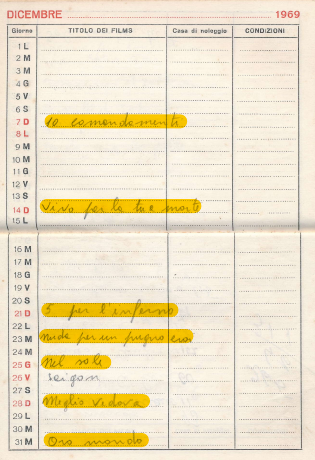 DICEMBRE 1969
Giorno TITOLO DEI FILMS Casa di noleggio CONDIZIONI
1 L
2 M
3 M
4 G
5 V
6 S
7 D 10 comandamenti
8 L
9 M
10 M
11 G
12 V
13 S
14 D Vivo per la tua morte
15 L
16 M
17 M
18 G
19 V
20 S
21 D 5 per l'inferno
22 L
23 M Nuda per un pugno eroi
24 M
25 G Nel sole
26 V saigon
27 S
28 D Meglio vedova
29 L
30 M
31 M Oro mondo